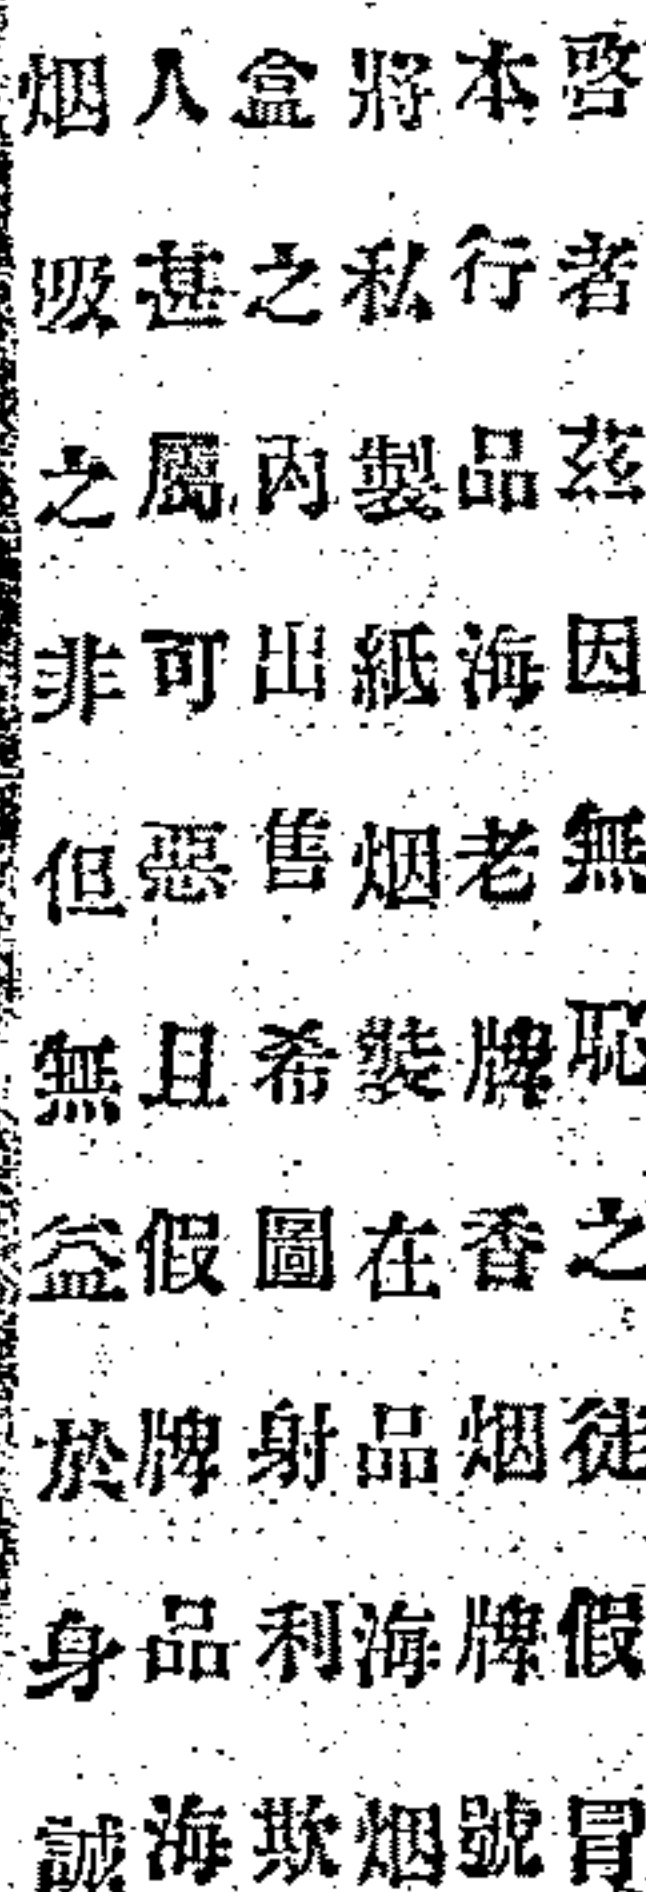 啓者茲因無恥之徒假冒
本行品海老牌香烟牌號
將私製紙烟裝在品海烟
盒之內出售希圖射利欺
人甚屬可惡且假牌品海
烟吸之非但無益於身誠